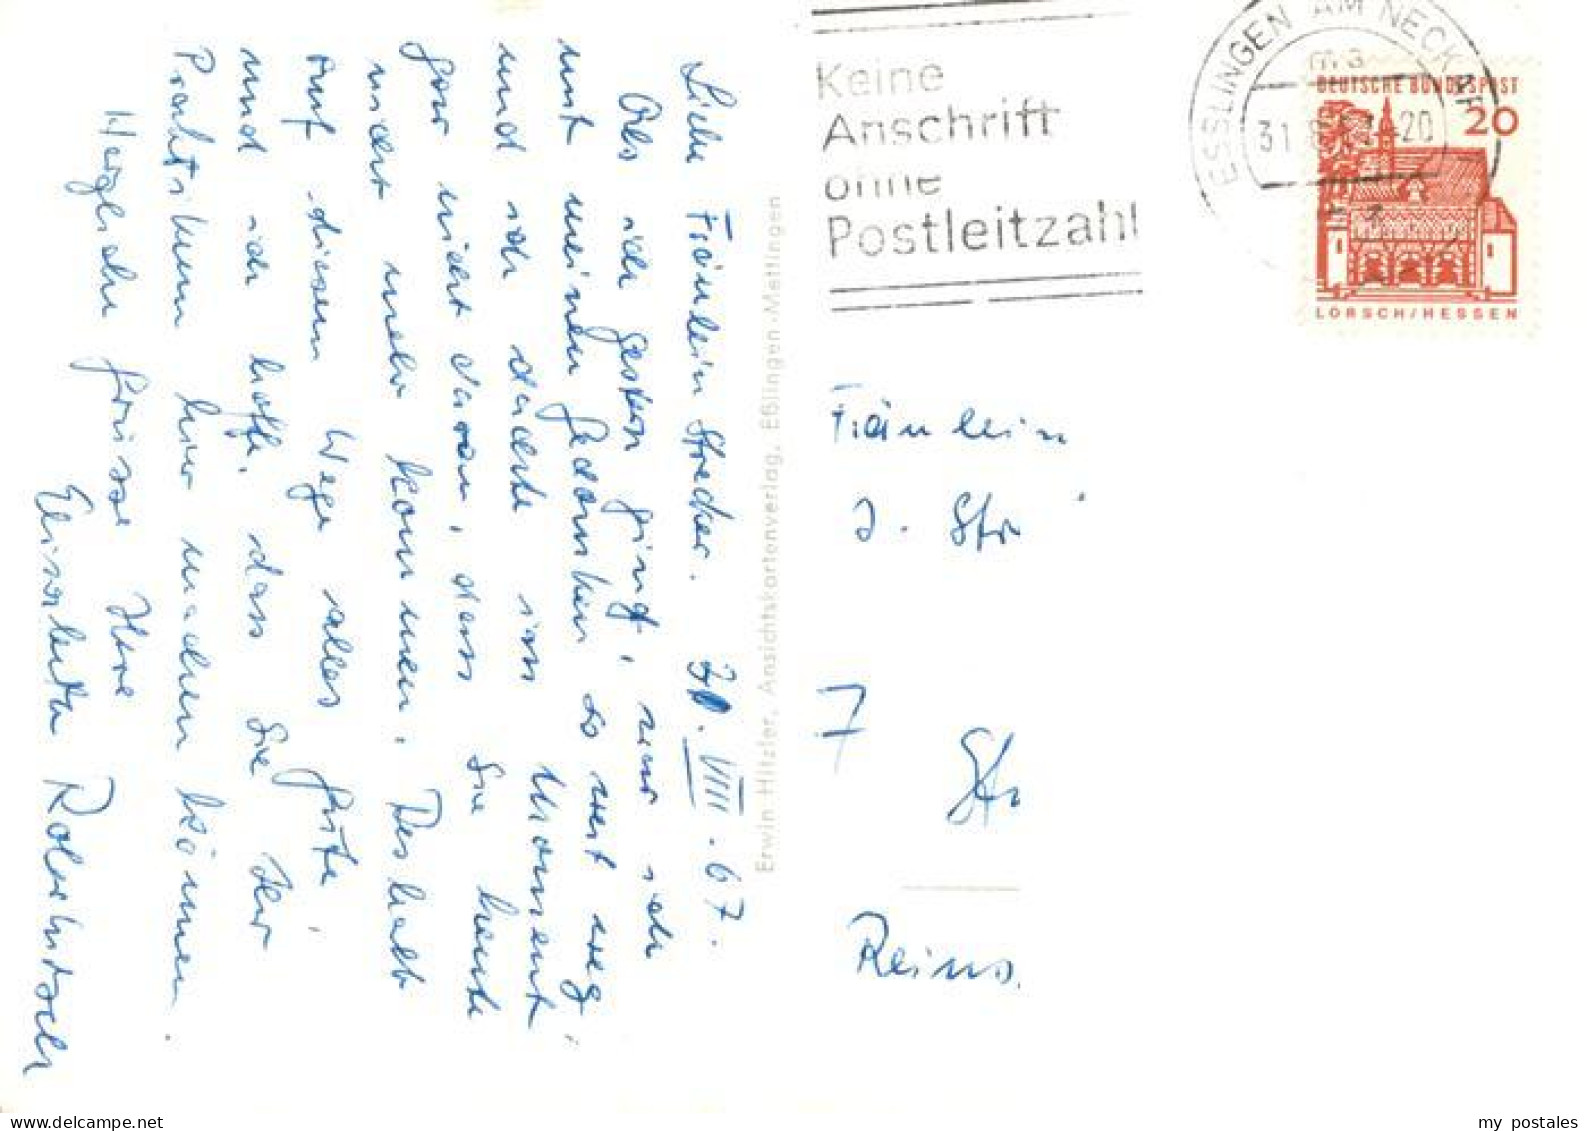 Liebe Fräulein Strecker. 30. VIII. 67.
Als ich gestern ging, war ich
mit meinen Gedanken so weit weg
und ich dachte im Moment
gar nicht daran, dass Sie heute
nicht mehr kommen. Deshalb
auf diesem Wege alles Gute,
und ich hoffe, dass Sie Ihr
Praktikum hier machen können.
Herzliche Grüsse Ihre
Elisabeth
Erwin Hitzler, Ansichtskartenverlag, Eßlingen-Mettingen
Keine
Anschrift
ohne
Postleitzahl
ESSLINGEN AM NECKAR
31. 8. -20
DEUTSCHE BUNDESPOST
20
LORSCH/HESSEN
Fräulein
J. Str
7 Str
my postales